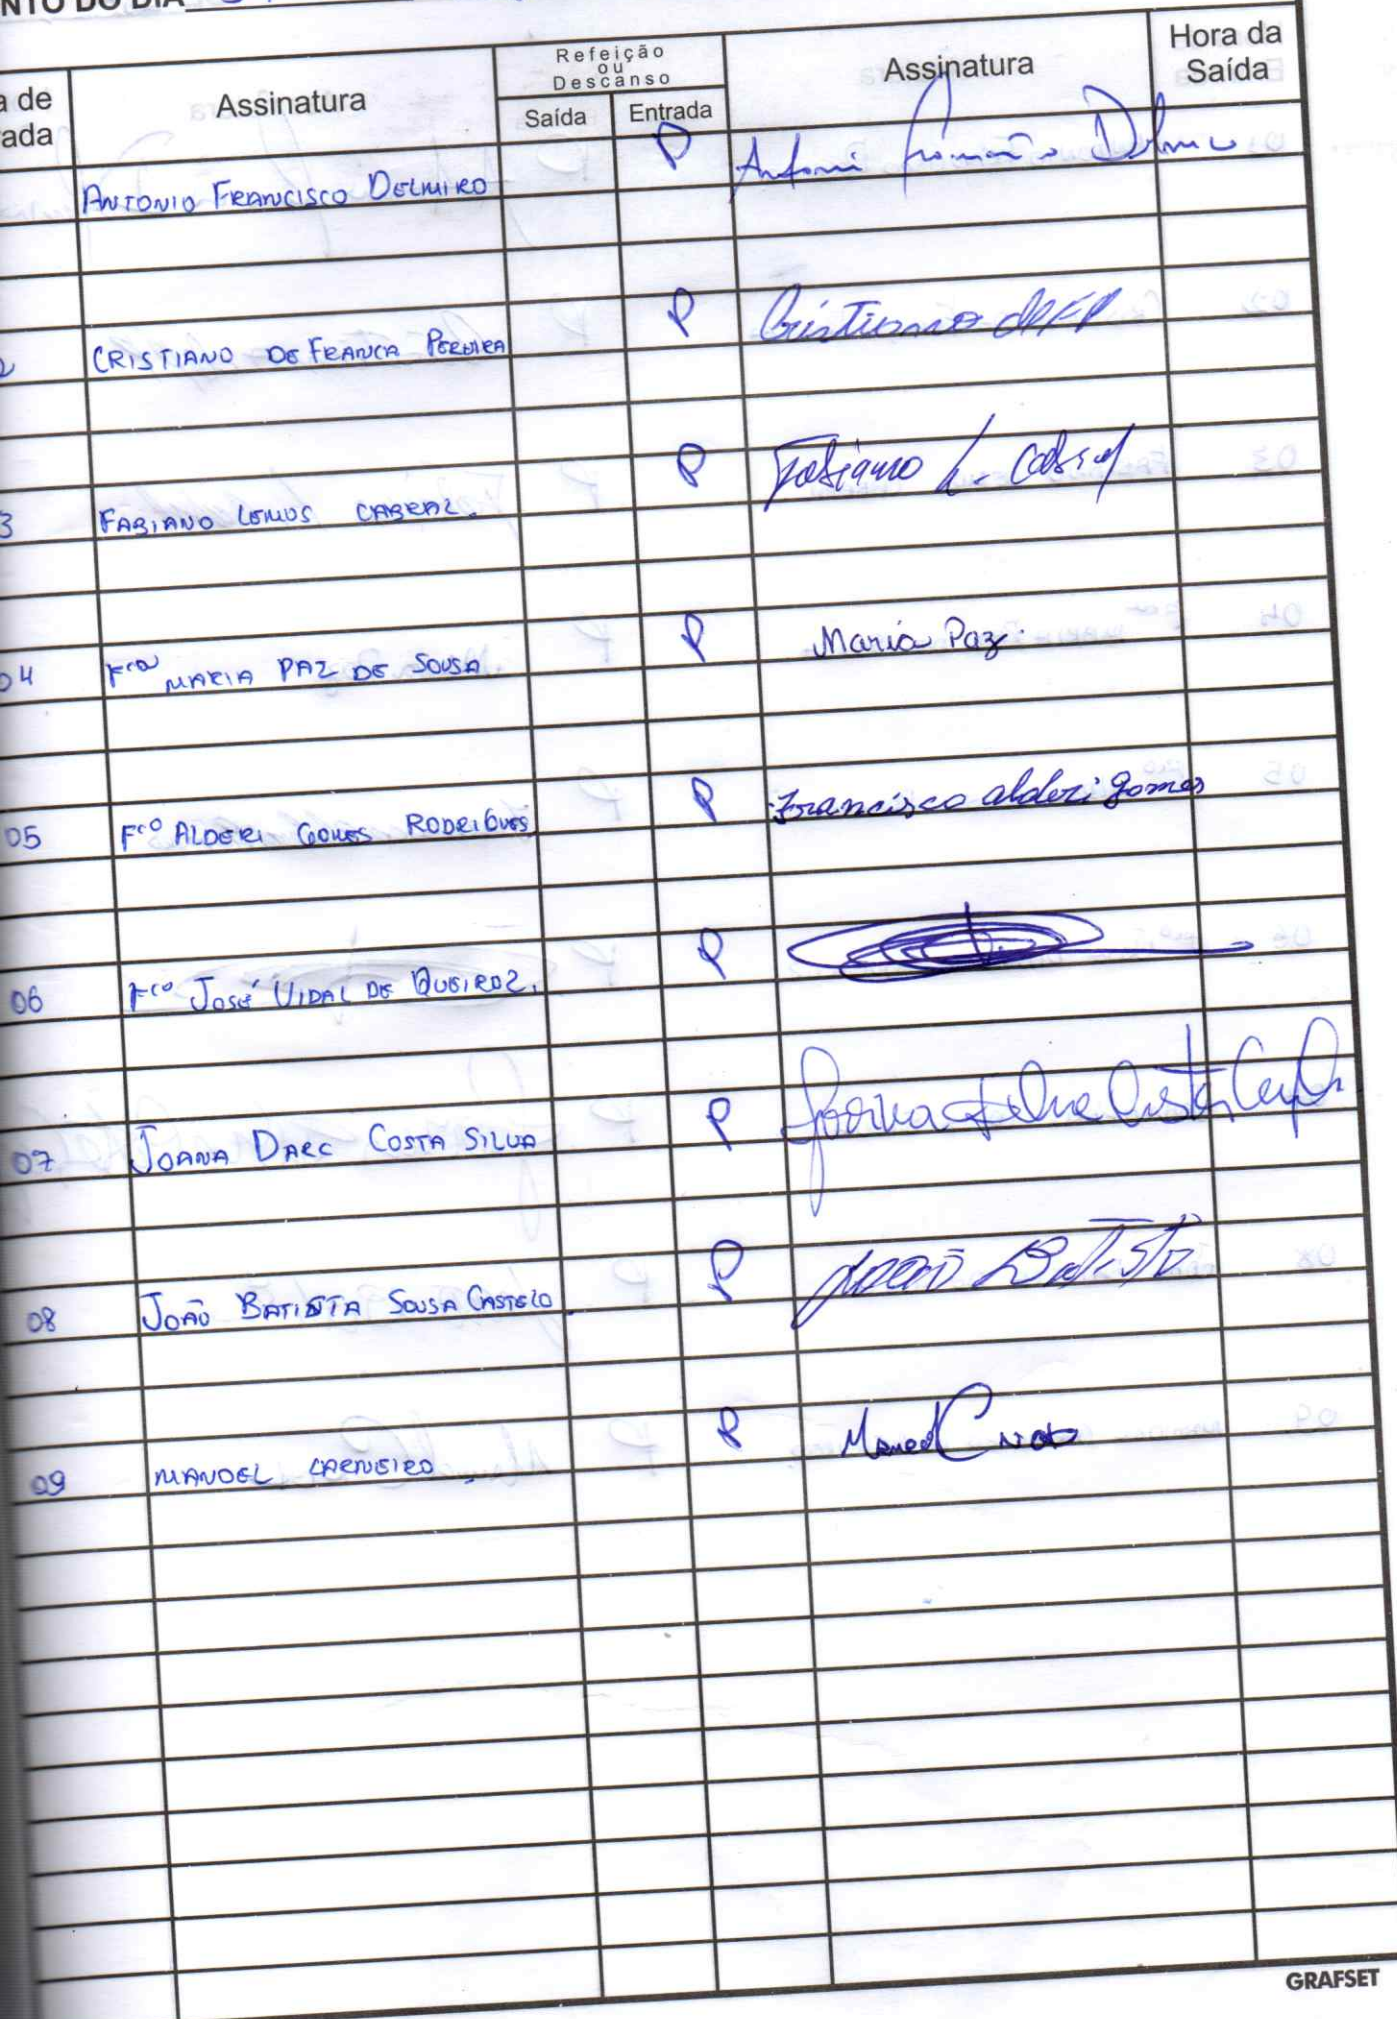 NTO DO DIA
a de
rada
Assinatura
Refeição
ou
Descanso
Saída
Entrada
Assinatura
Hora da
Saída
ANTONIO FRANCISCO DELMIRO P Antoni Delmiro
2 CRISTIANO DE FRANCA PEREIRA P Cristiano dFP
3 FABIANO LEMOS CABRAL. P Fabiano L. Cabral
04 Fca MARIA PAZ DE SOUSA P Maria Paz.
05 Fco ALDERI GOMES RODRIGUES P Francisco alderi gomes
06 Fco JOSÉ VIDAL DE QUEIROZ. P
07 JOANA DARC COSTA SILVA P
08 JOÃO BATISTA SOUSA CASTELO P João Batista
09 MANOEL CARNEIRO P Manoel
GRAFSET